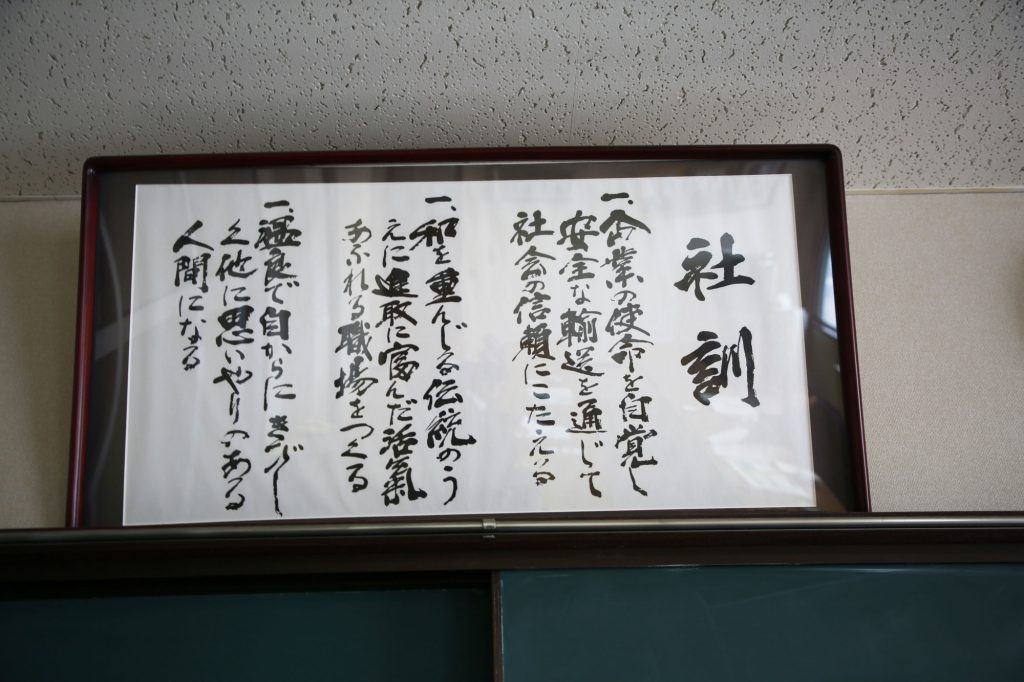 社訓
一、企業の使命を自覚し
安全な輸送を通じて
社会の信頼にこたえる
一、和を重んじる伝統のう
えに進取に富んだ活氣
あふれる職場をつくる
一、温良で自からにきびし
く他に思いやりのある
人間になる